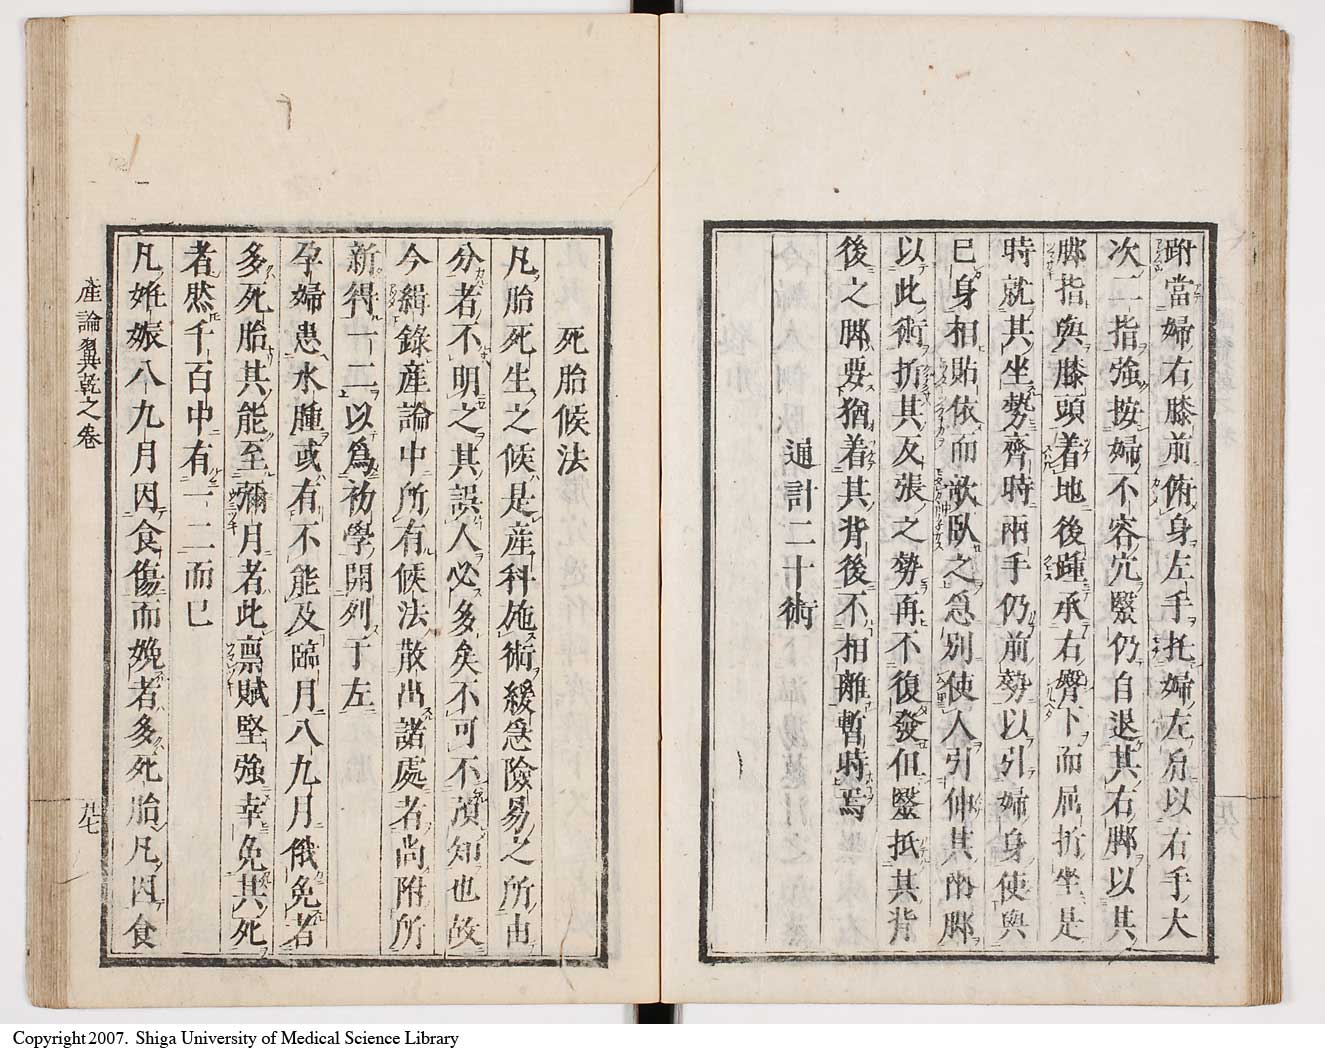 跗當婦右膝前俯身左手托婦左肩以右手大
次二指強按婦不容穴緊仍自退其右脚以其
脚指與膝頭着地後踵承右臀下而屈折坐是
時就其坐勢齊時兩手仍前勢以引婦身使與
已身相貼依而欹臥之急別使人引伸其兩脚
以此術折其反張之勢再不復發但緊抵其背
後之脚要猶着其背後不相離暫時焉
通計二十術
死胎候法
凡胎死生之候是産科施術緩急險易之所由
分者不明之其誤人必多矣不可不預知也故
今緝錄産論中所有候法散出諸處者尚附所
新得一二以爲初學開列于左
孕婦患水腫或有不能及臨月八九月俄免者
多死胎其能至彌月者此禀賦堅強幸免其死
者然千百中有一二而已
凡姙娠八九月因食傷而娩者多死胎凡因食
産論翼乾之卷
廿七
Copyright 2007. Shiga University of Medical Science Library